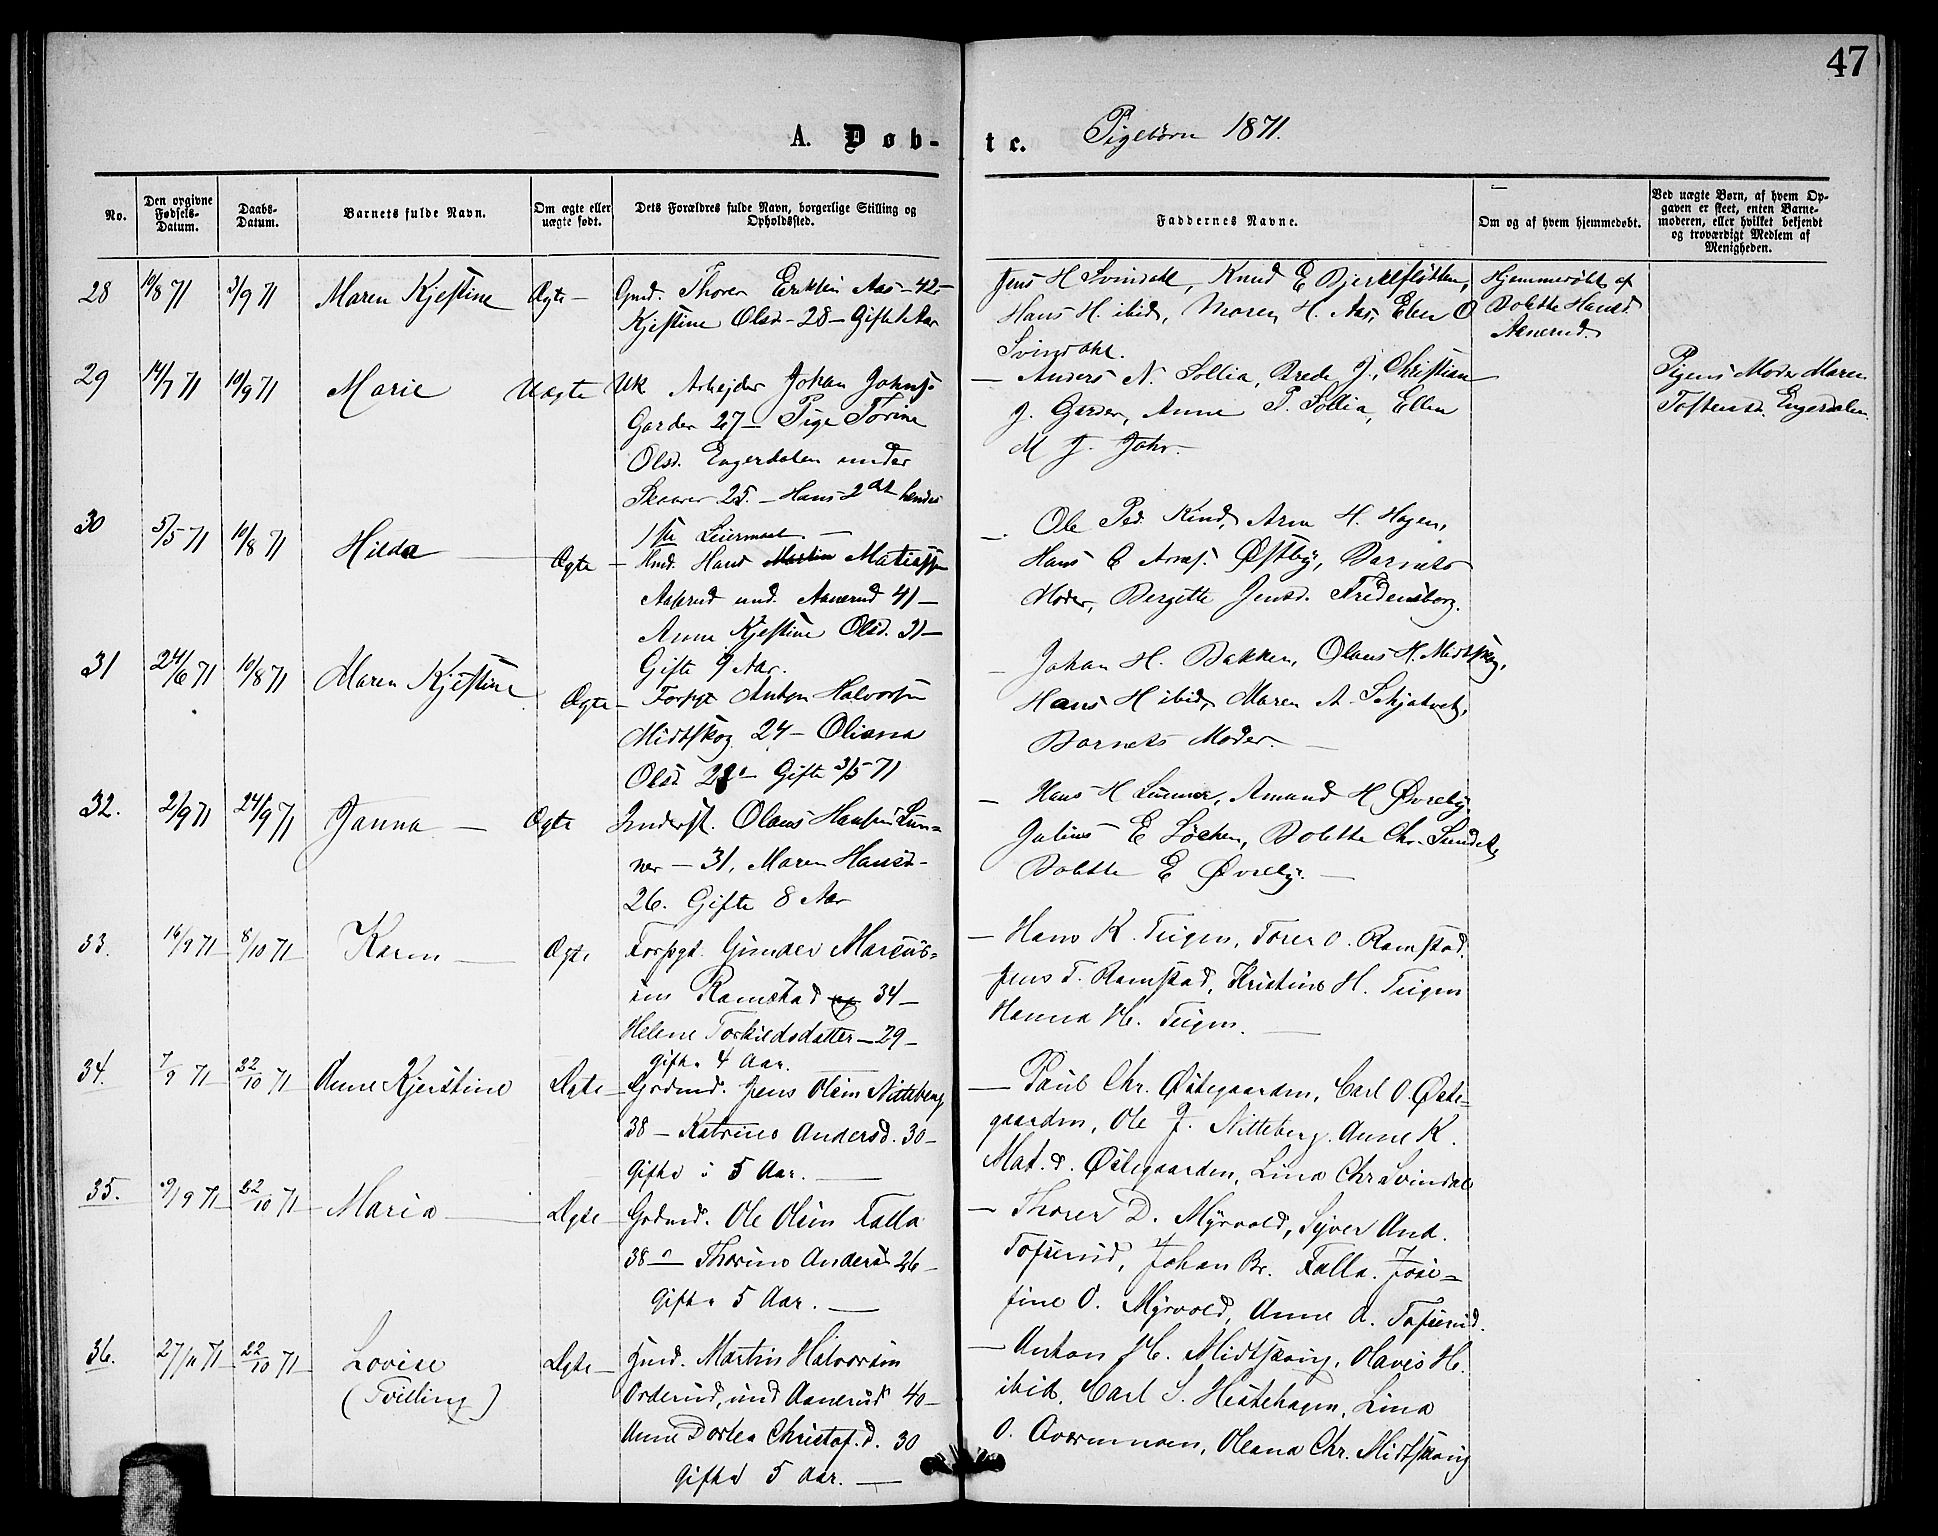 47
A. Døb-
te. Pigebørn 1871.
No.
Den opgivne Fødsels-Datum.
Daabs-Datum.
Barnets fulde Navn.
Om ægte eller uægte født.
Dets Forældres fulde Navn, borgerlige Stilling og Opholdssted.
Faddernes Navne.
Om og af hvem hjemmedøbt.
Ved uægte Børn, af hvem Opgaven er skeet, enten Barnemoderen, eller hvilket bekjendt og troværdigt Medlem af Menigheden.
28 19/8 71 3/9 71 Maren Kjestine Ægte -
Gmd. Thorer Eriksen Aas - 42 -
Kjestine Olsd - 28 - Gifte 1 Aar
Jens H Svindahl, Knud E Bjerkefløtten,
Hans H. ibid, Maren H. Aas, Ellen O
Svindahl.
Hjemmedøbt af
Bolette Hansd
Aanerud.
29 14/7 71 10/9 71 Marie Uægte
Uk Arbejder Johan Johns.
Garder 27 - Pige Torine
Olsd. Engerdalen under
Skaarer 25. - Hans 2det hendes
1ste Leiermaal. -
- Anders N. Sollia, Brede J., Christian
J. Garder, Anne P. Sollia, Ellen
M J. Jahr.
Pigens Moder Maren
Toftensd. Engerdalen
30 5/5 71 10/8 71 Hilda Ægte
- Hmd. Hans Martin Matiassen
Aaserud und. Aanerud 41 -
Anne Kjestine Olsd. 31 -
Gifte 9 Aar.
- Ole Ped. Kind, Arne H. Hagen,
Hans C Arnes. Østby, Barnets
Moder, Bergitte Jensd. Fredensborg.
31 24/6 71 10/8 71 Maren Kjestine Ægte
- Forpgt Anton Halvorsen
Midtskog 24 - Oliana
Olsd 28 - Gifte 3/5 71
- Johan H. Bakken, Olaus H. Midtskog,
Hans H ibid, Maren A. Skjatvet,
Barnets Moder. -
32. 2/9 71 24/9 71 Janna - Ægte
Inderst. Olaus Hansen Lun-
ner - 31, Maren Hansd -
26. Gifte 8 Aar
- Hans H Lunner, Amund H Øvreby,
Julius E Løken, Bolette Chr. Sundet,
Bolette E Øvreby. -
33. 16/9 71 8/10 71 Karen - Ægte
Forpgt. Gunder Marcus-
sen Ramstad og 34 -
Helene Torkildsdatter - 29 -
gifte 4 Aar.
- Hans K. Teigen, Torer O. Ramstad.
Jens T. Ramstad, Kristine H. Teigen
Hanna H. Teigen. -
34. 7/9 71 22/10 71 Anne Kjerstine Ægte
- Grdmd. Jens Olsen Nitteberg
38 - Katrine Andersd. 30 -
gifte i 5 Aar. -
- Paul Chr. Østegaarden, Carl O. Øste-
gaarden, Ole J. Nitteberg. Anne K.
Mat. d. Østegaarden, Lina Chr Svindal
35. 9/9 71 22/10 71 Maria - Ægte
- Grdmd. Ole Olsen Falla
38 - Thorine Andersd 26 -
gifte 5 Aar. -
- Thorer D. Myrvold, Syver And.
Tofserud, Johan Br. Falla. Jose-
fine O. Myrvold, Anne A. Tofserud.
36. 27/11 71 22/10 71 Lovise Ægte -
(Tvilling)
Hmd. Martin Halvorsen
Orderud, und Aanerud 40 -
Anne Dortea Christof. d. 30
gifte 5 Aar. -
- Anton H. Midtskoug, Olaves H.
ibid. Carl S. Hestehagen, Lina
O. Oleana Chr. Midtskoug